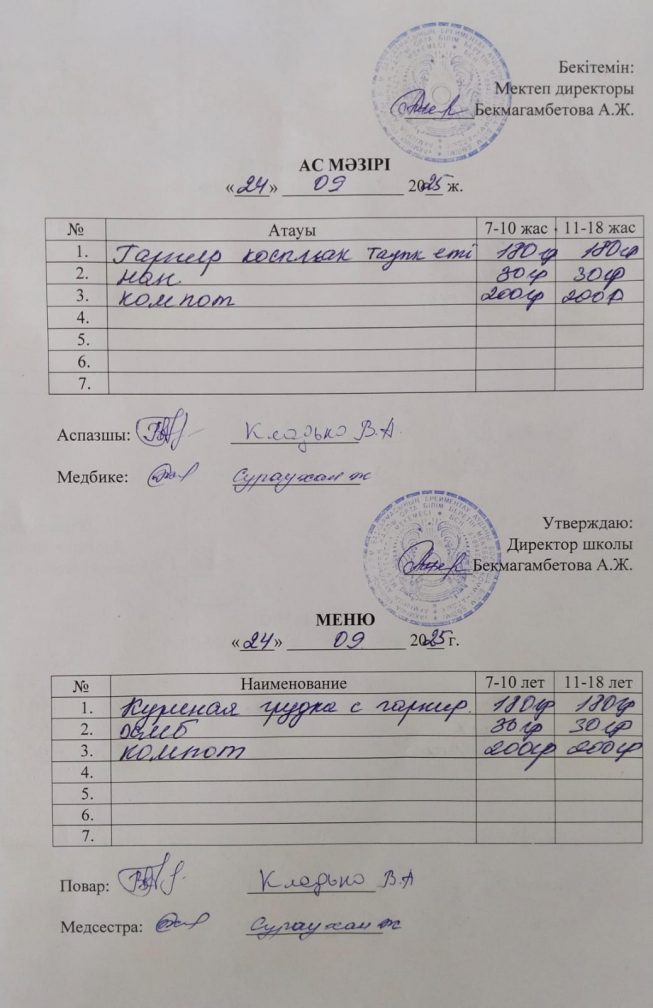 Бекітемін:
Мектеп директоры
Бекмагамбетова А.Ж.
АС МӘЗІРІ
«24» 09 2025 ж.
№ Атауы 7-10 жас 11-18 жас
1. Гарнир қосылған тауық еті 180гр 180гр
2. нан 30гр 30гр
3. компот 200гр 200гр
4.
5.
6.
7.
Аспазшы: Кладько В.А.
Медбике: Сураухан
Утверждаю:
Директор школы
Бекмагамбетова А.Ж.
МЕНЮ
«24» 09 2025 г.
№ Наименование 7-10 лет 11-18 лет
1. Куриная грудка с гарнир. 180гр 180гр
2. хлеб 30гр 30гр
3. компот 200гр 200гр
4.
5.
6.
7.
Повар: Кладько В.А
Медсестра: Сураухан